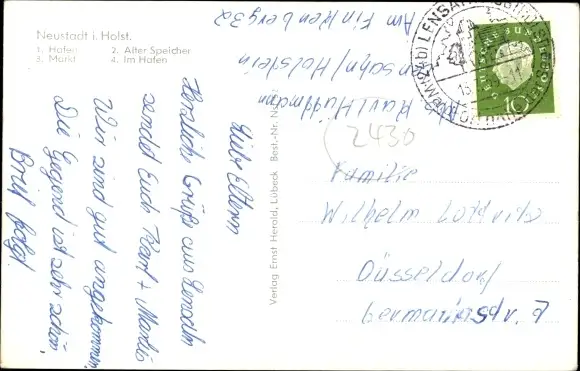 Neustadt i. Holst.
1. Hafen 2. Alter Speicher
3. Markt 4. Im Hafen
Abs. Karl Hüttmann
Lensahn/Holstein
Am Finkenberg 32
Liebe Eltern
Herzliche Grüße aus Lensahn
sendet Euch Karl +
Wir sind gut angekommen,
Die Gegend ist sehr schön,
Brief folgt!
Verlag Ernst Herold, Lübeck Best.-Nr.
(24b) LENSAHN
DEUTSCHE BUNDESPOST
10
2430
Familie
Wilhelm
Düsseldorf